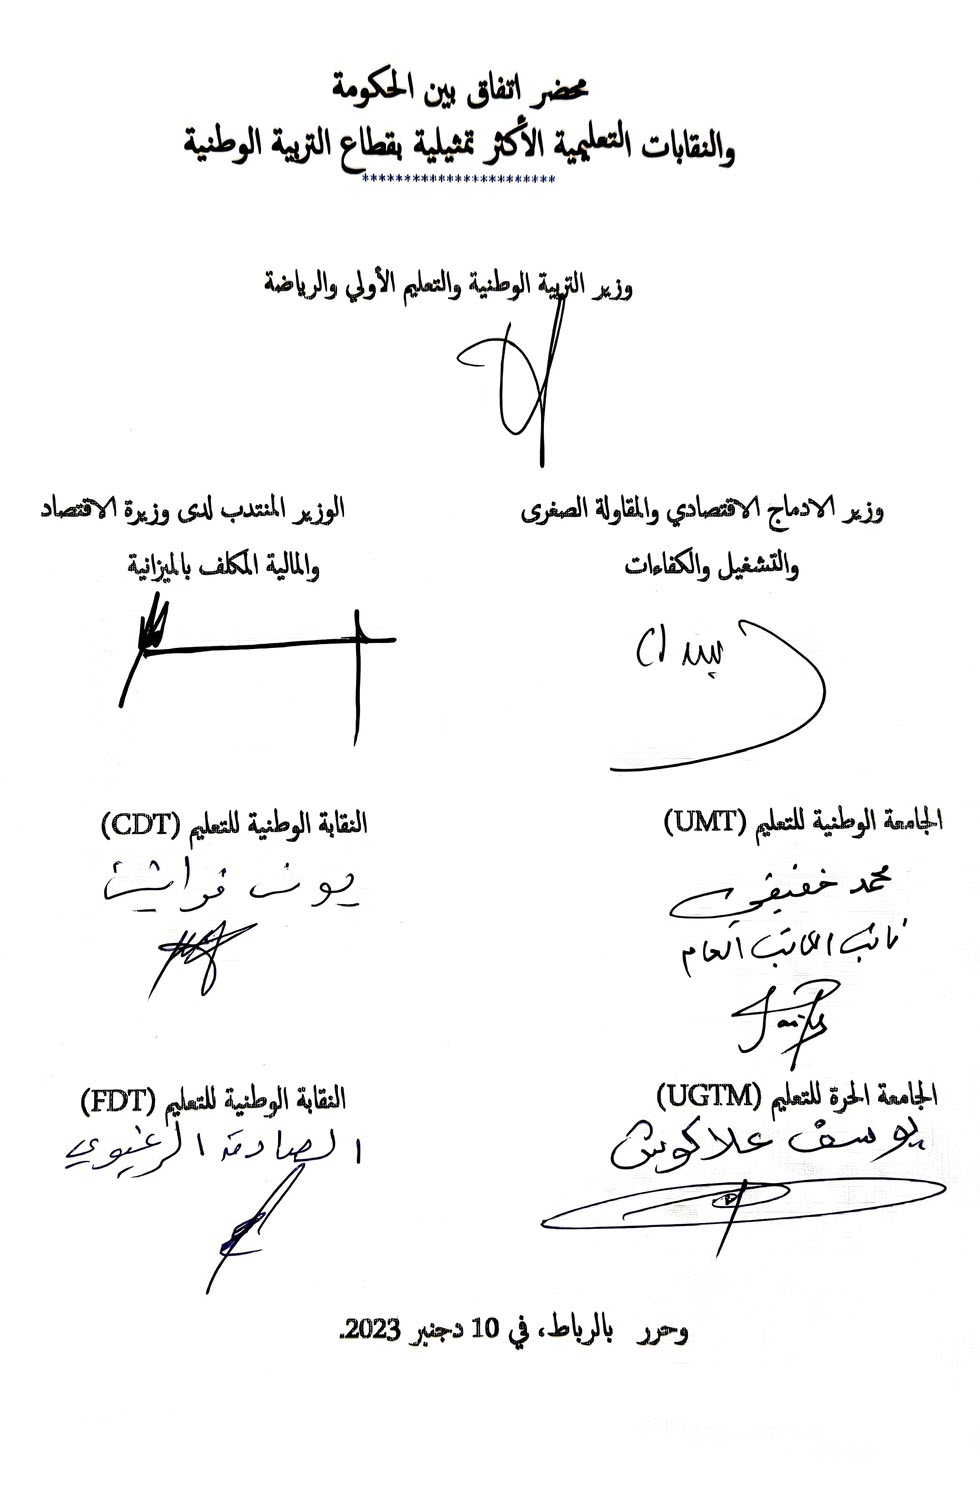 محضر اتفاق بين الحكومة
والنقابات التعليمية الأكثر تمثيلية بقطاع التربية الوطنية
***********************
وزير التربية الوطنية والتعليم الأولي والرياضة
وزير الادماج الاقتصادي والمقاولة الصغرى
والتشغيل والكفاءات
الوزير المنتدب لدى وزيرة الاقتصاد
والمالية المكلف بالميزانية
الجامعة الوطنية للتعليم (UMT)
محمد خفيفي
نائب الكاتب العام
النقابة الوطنية للتعليم (CDT)
يونس فراشين
الجامعة الحرة للتعليم (UGTM)
يوسف علاكوش
النقابة الوطنية للتعليم (FDT)
الصادق الرغيوي
وحرر بالرباط، في 10 دجنبر 2023.